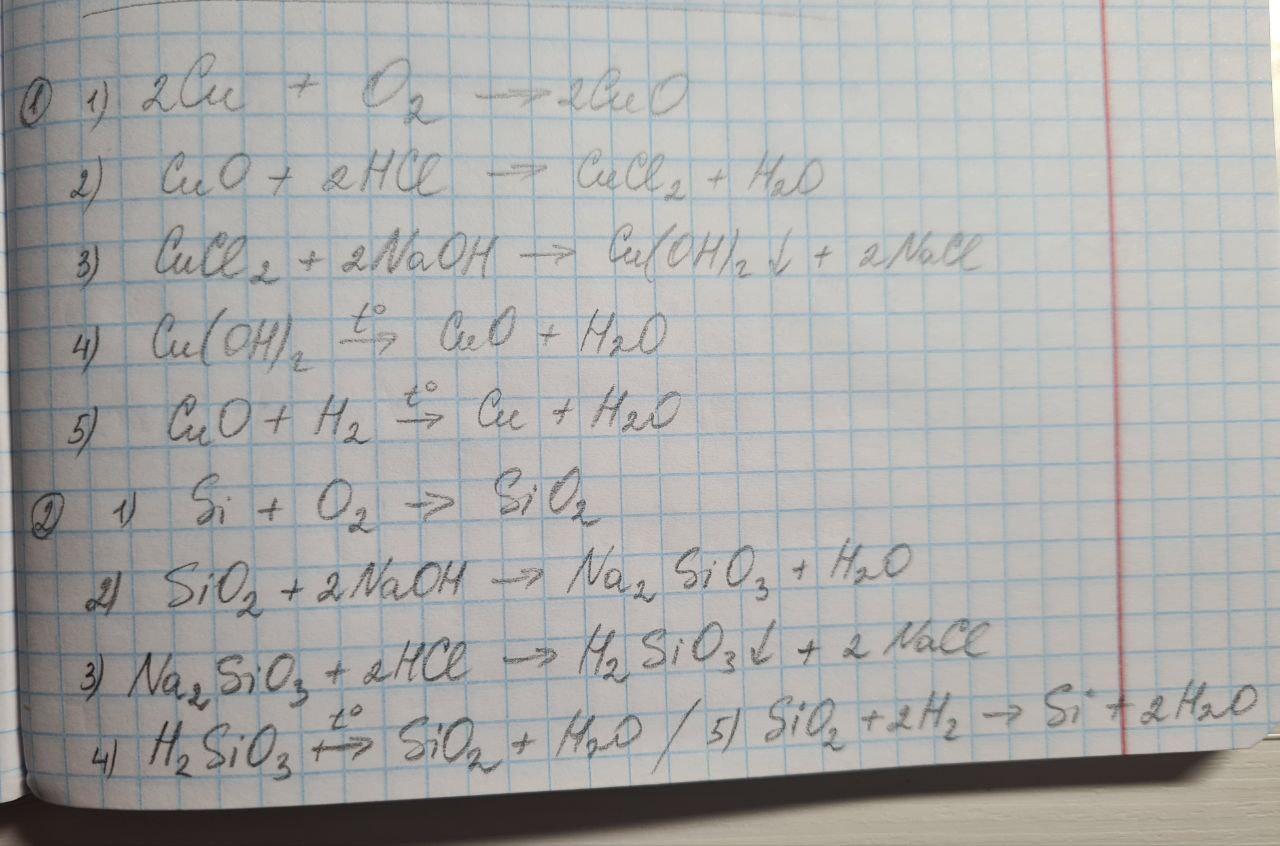 ① 1) 2Cu + O₂ → 2CuO
2) CuO + 2HCl → CuCl₂ + H₂O
3) CuCl₂ + 2NaOH → Cu(OH)₂↓ + 2NaCl
4) Cu(OH)₂ t°→ CuO + H₂O
5) CuO + H₂ t°→ Cu + H₂O
② 1) Si + O₂ → SiO₂
2) SiO₂ + 2NaOH → Na₂SiO₃ + H₂O
3) Na₂SiO₃ + 2HCl → H₂SiO₃↓ + 2NaCl
4) H₂SiO₃ t°→ SiO₂ + H₂O / 5) SiO₂ + 2H₂ → Si + 2H₂O